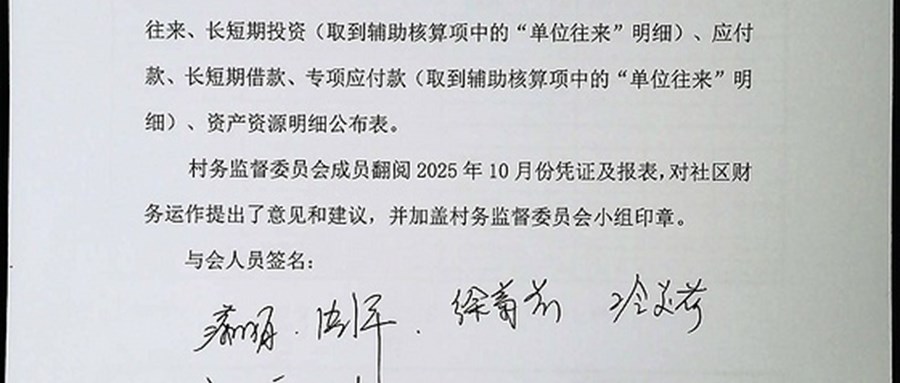 往来、长短期投资（取到辅助核算项中的“单位往来”明细）、应付
款、长短期借款、专项应付款（取到辅助核算项中的“单位往来”明
细）、资产资源明细公布表。
村务监督委员会成员翻阅 2025 年 10 月份凭证及报表，对社区财
务运作提出了意见和建议，并加盖村务监督委员会小组印章。
与会人员签名：
徐菊芳